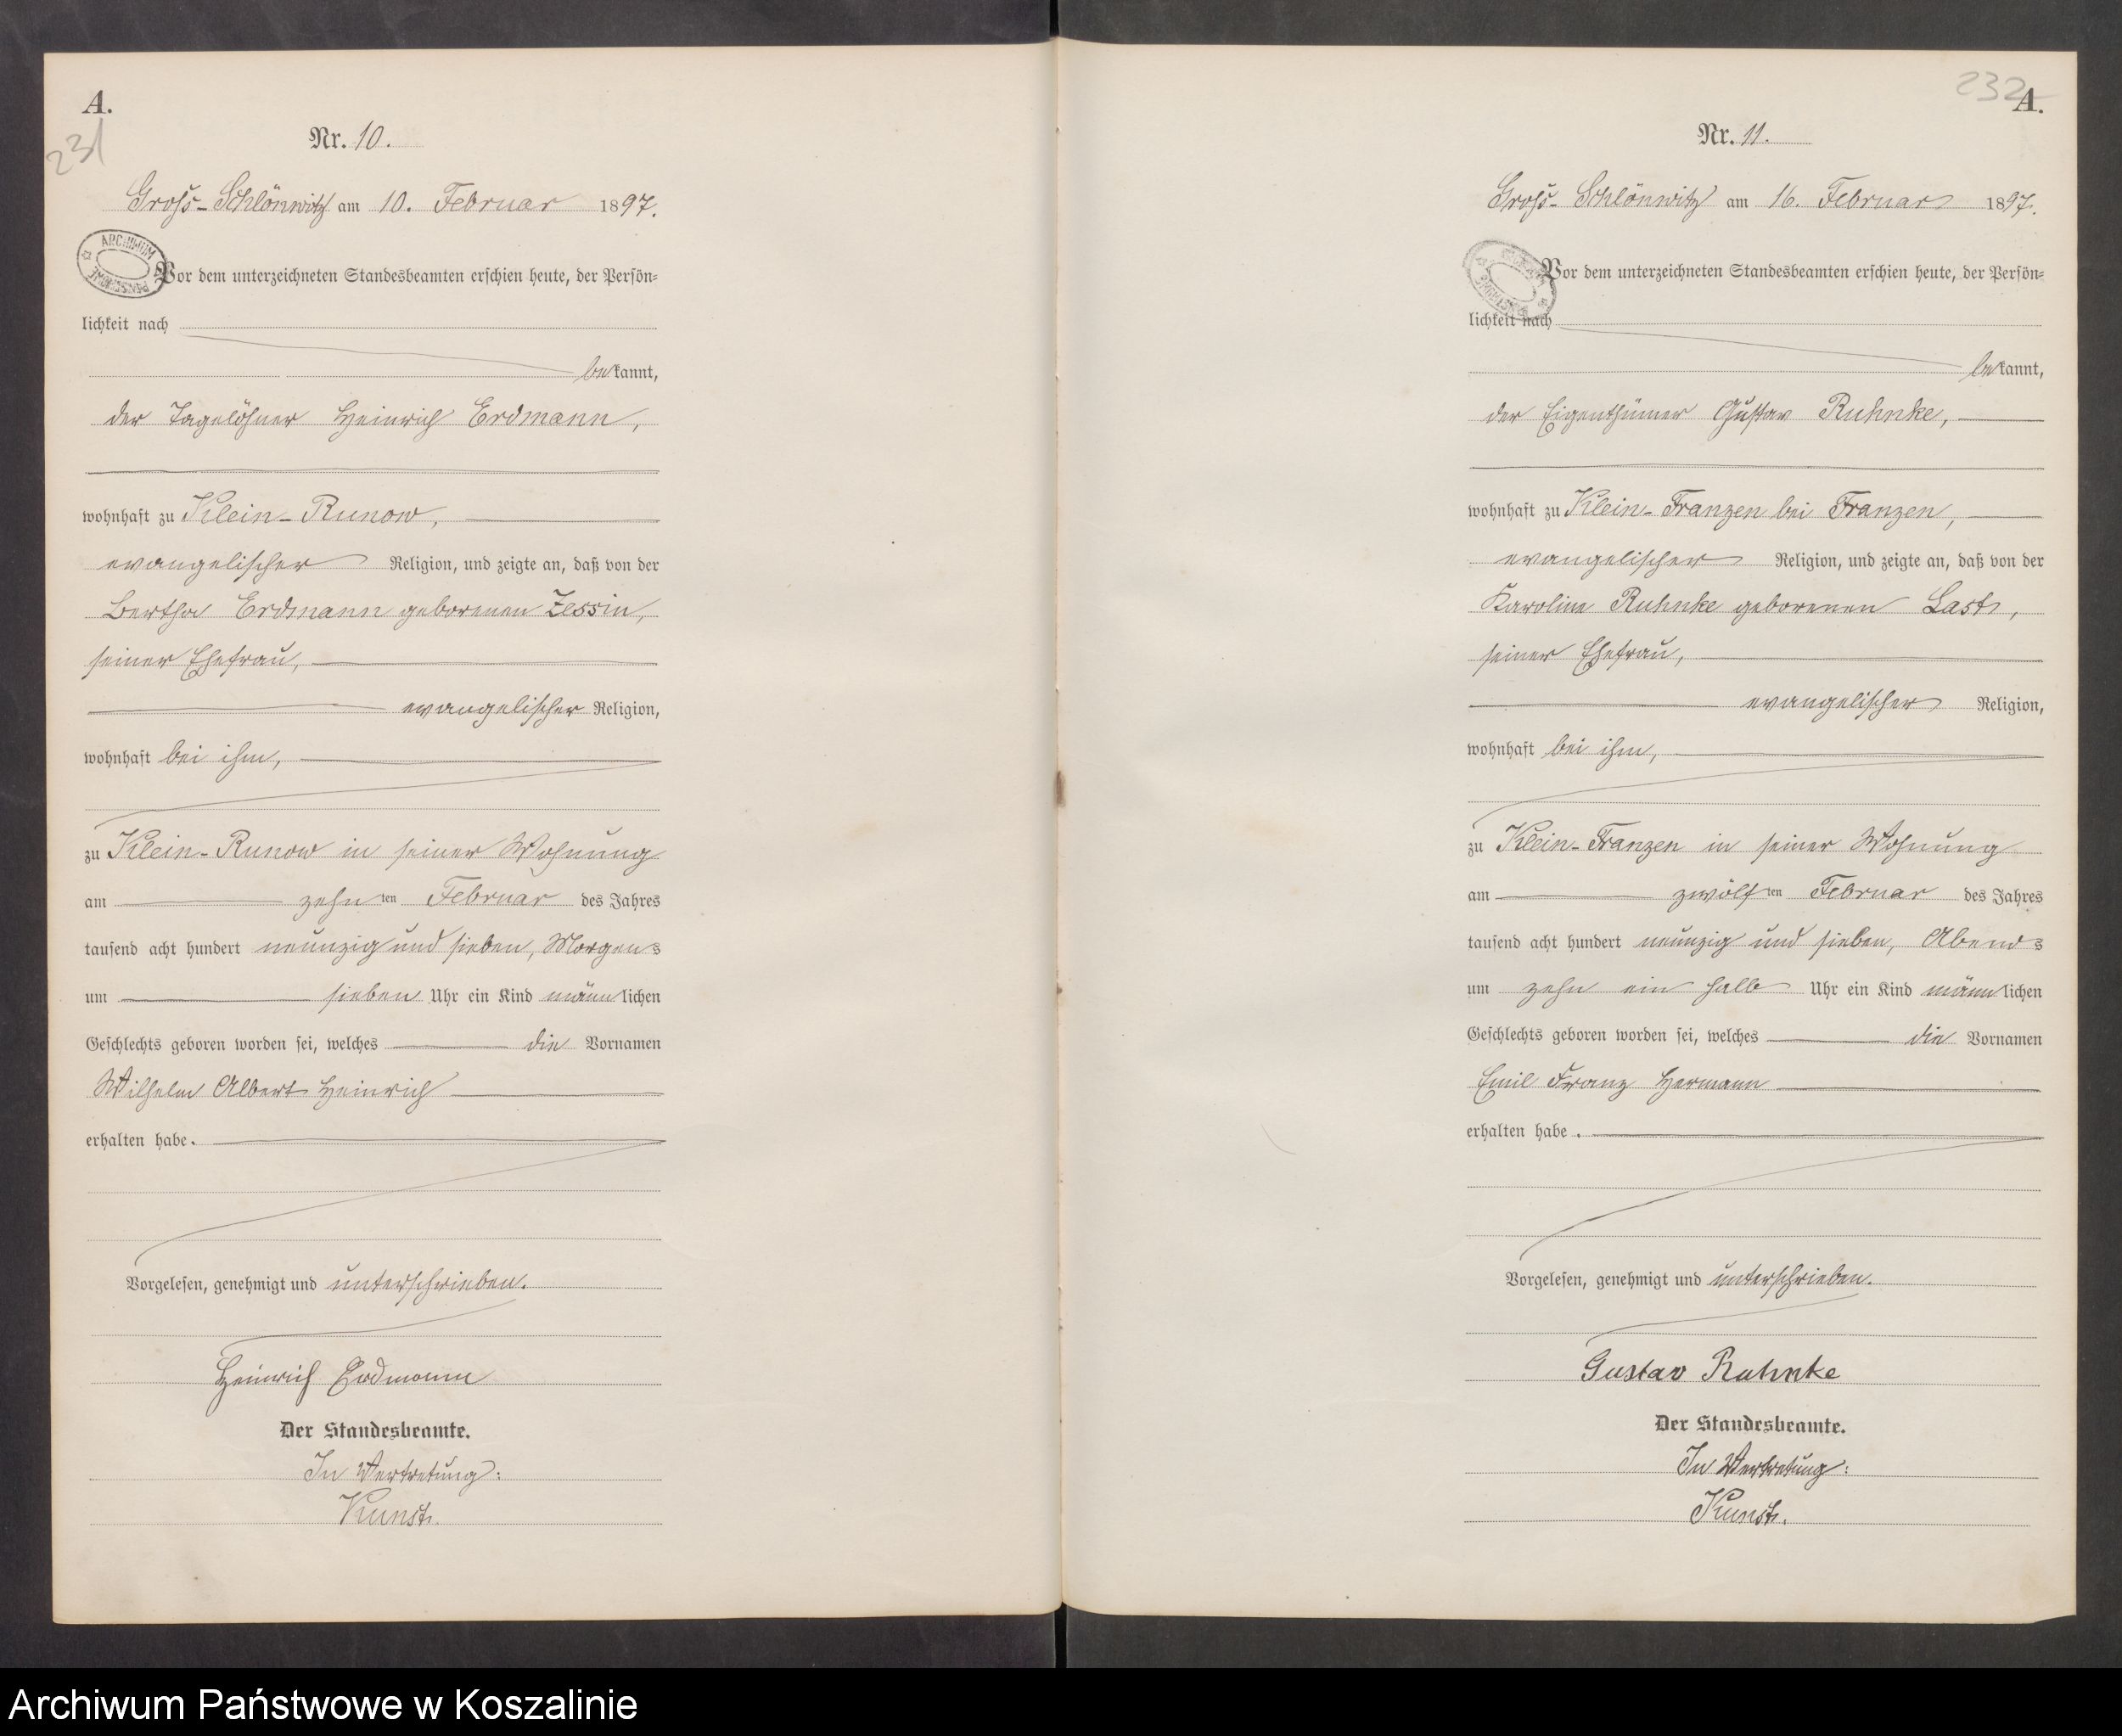 A.
231
Nr. 10.
Groß-Schlönwitz am 10. Februar 1897.
ARCHIWUM
Vor dem unterzeichneten Standesbeamten erschien heute, der Persön=
lichkeit nach
bekannt,
der Tagelöhner Heinrich Erdmann,
wohnhaft zu Klein-Runow,
evangelischer Religion, und zeigte an, daß von der
Bertha Erdmann geborenen Zessin,
seiner Ehefrau,
evangelischer Religion,
wohnhaft bei ihm,
zu Klein-Runow in seiner Wohnung
am zehnten Februar des Jahres
tausend acht hundert neunzig und sieben, Morgens
um sieben Uhr ein Kind männlichen
Geschlechts geboren worden sei, welches die Vornamen
Wilhelm Albert Heinrich
erhalten habe.
Vorgelesen, genehmigt und unterschrieben.
Heinrich Erdmann
Der Standesbeamte.
In Vertretung:
Kunst.
232
A.
Nr. 11.
Groß-Schlönwitz am 16. Februar 1897.
Vor dem unterzeichneten Standesbeamten erschien heute, der Persön=
lichkeit nach
bekannt,
der Eigenthümer Gustav Ruhnke,
wohnhaft zu Klein-Franzen bei Franzen,
evangelischer Religion, und zeigte an, daß von der
Karoline Ruhnke geborenen Last,
seiner Ehefrau,
evangelischer Religion,
wohnhaft bei ihm,
zu Klein-Franzen in seiner Wohnung
am zwölften Februar des Jahres
tausend acht hundert neunzig und sieben, Abends
um zehn ein halb Uhr ein Kind männlichen
Geschlechts geboren worden sei, welches die Vornamen
Emil Franz Hermann
erhalten habe.
Vorgelesen, genehmigt und unterschrieben.
Gustav Ruhnke
Der Standesbeamte.
In Vertretung:
Kunst.
Archiwum Państwowe w Koszalinie